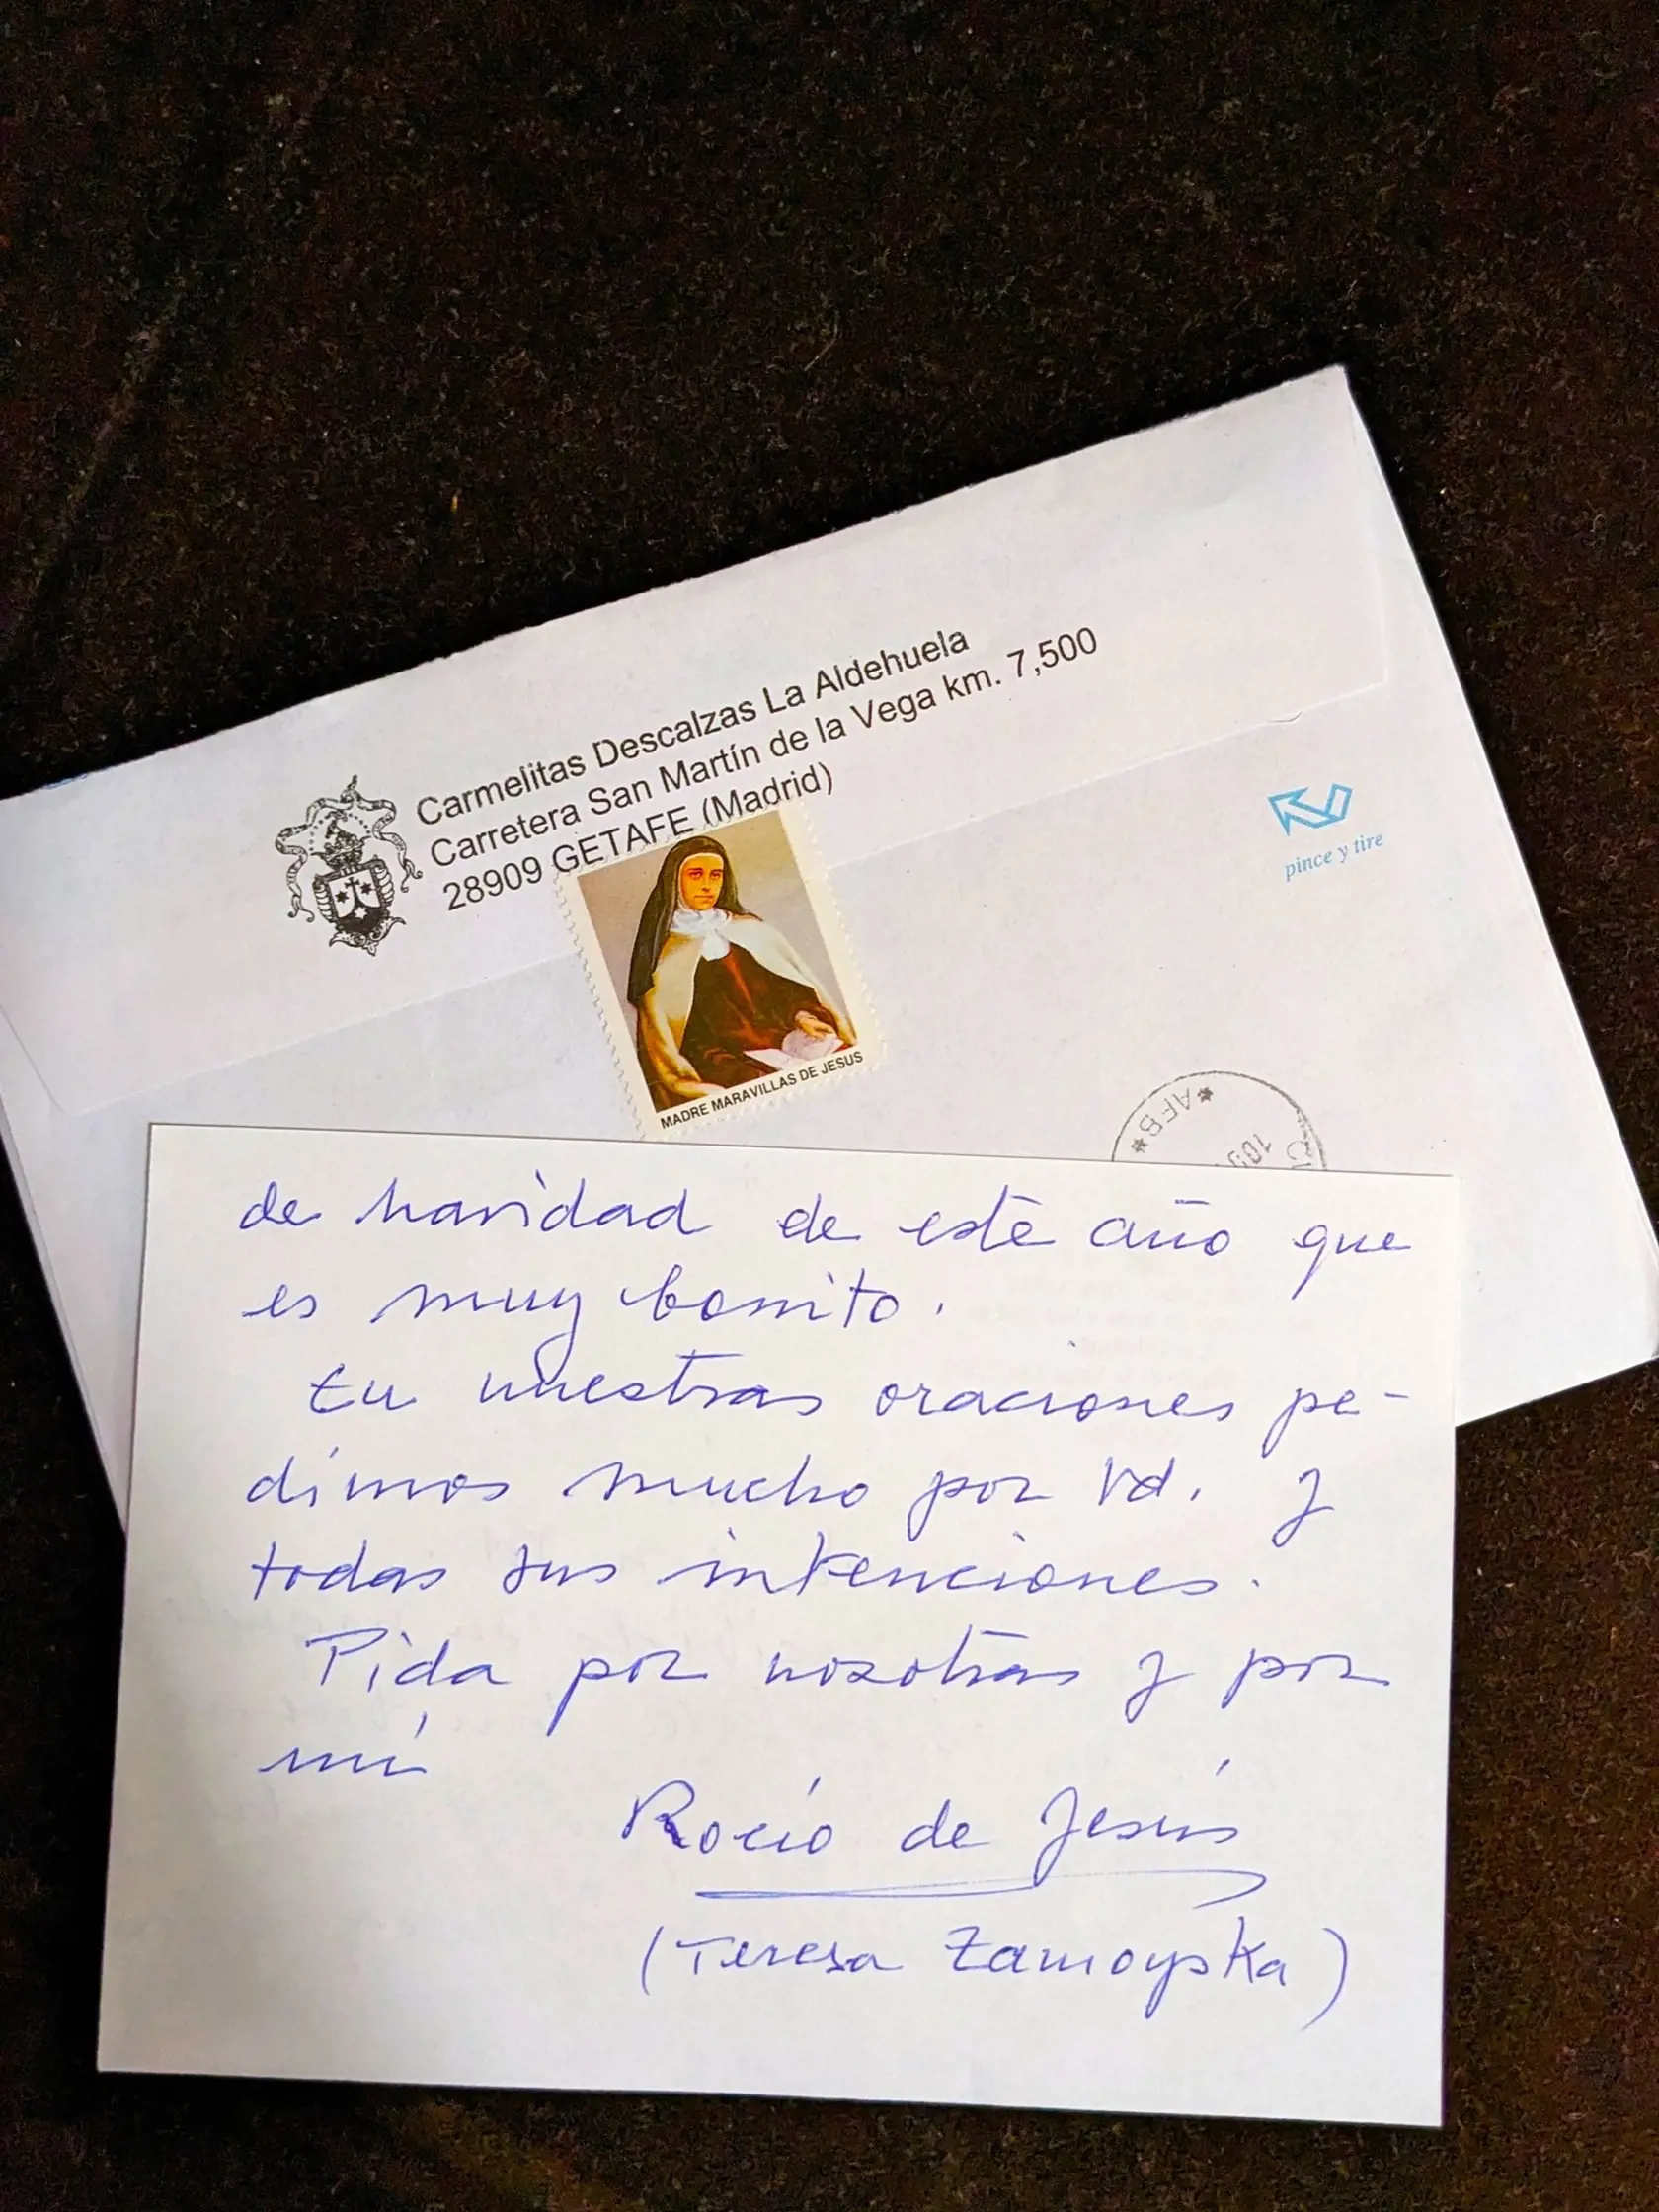 Carmelitas Descalzas La Aldehuela
Carretera San Martín de la Vega km. 7,500
28909 GETAFE (Madrid)
pince y tire
MADRE MARAVILLAS DE JESUS
*AFB*
de navidad de este año que
es muy bonito.
En nuestras oraciones pe-
dimos mucho por Vd. y
todas sus intenciones.
Pida por nosotras y por
mí
Rocío de Jesús
(Teresa Zamoyska)